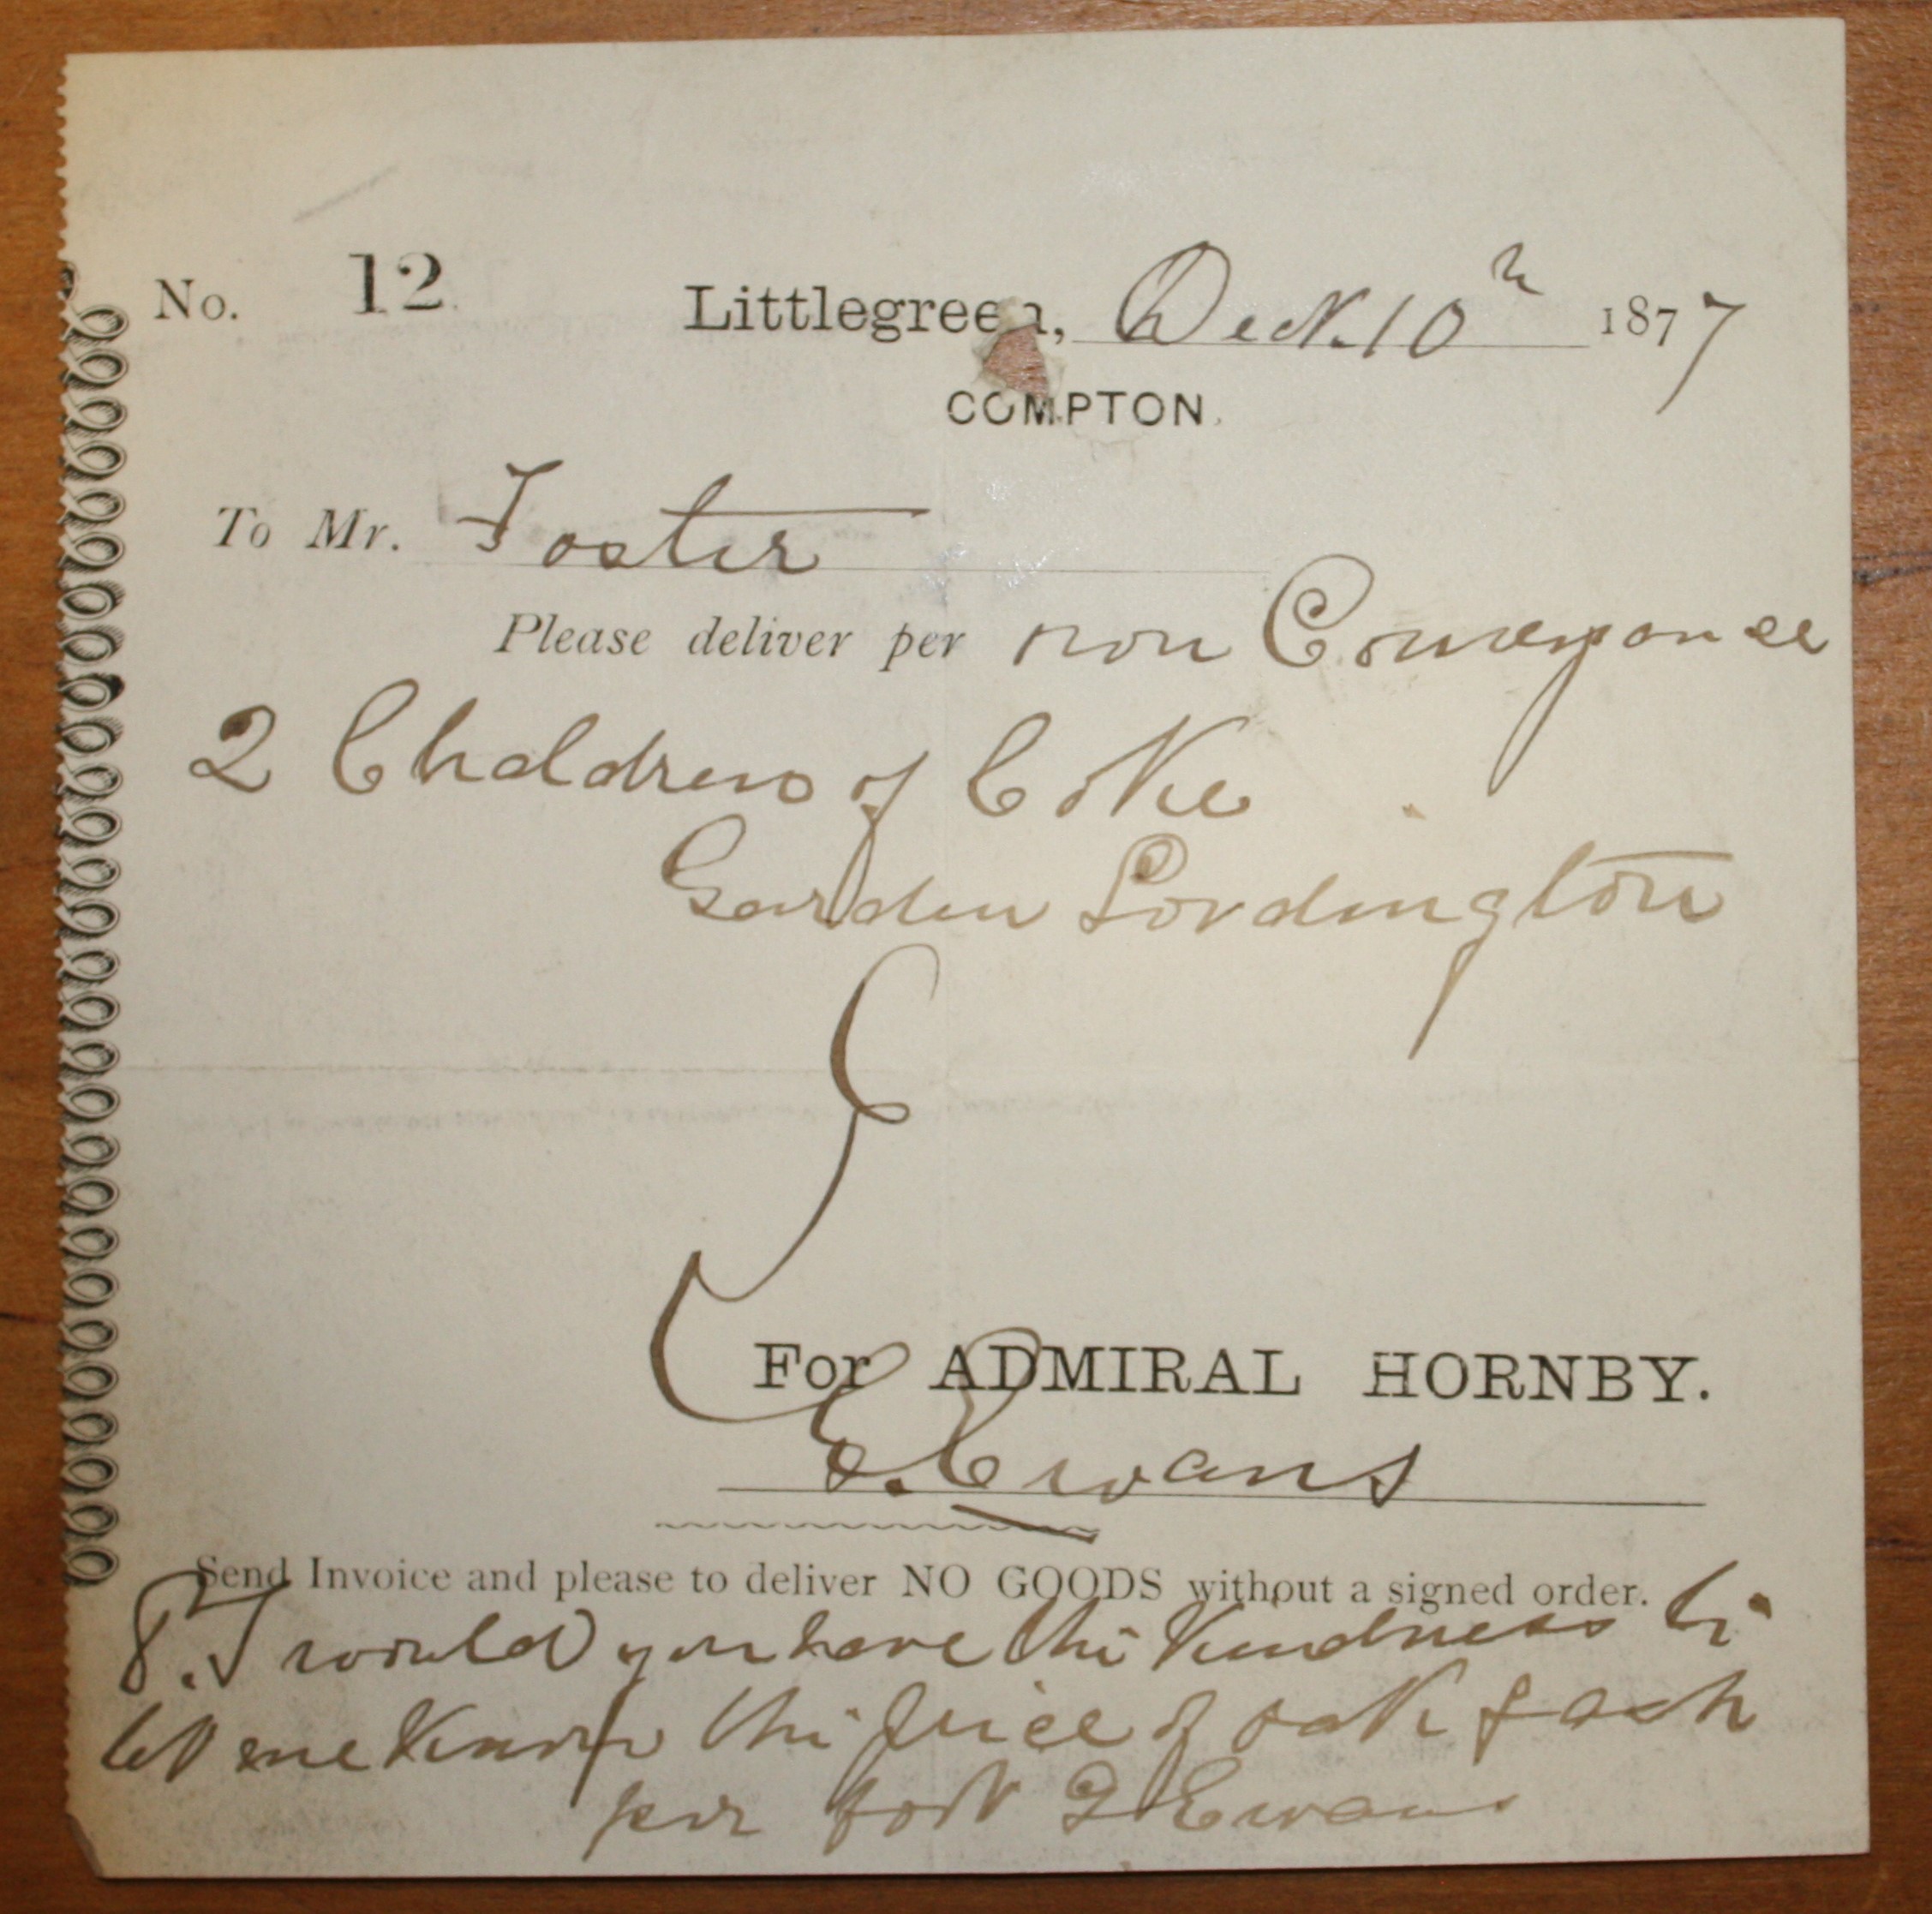 No. 12 Littlegreen, Dec. 10th 1877
COMPTON.
To Mr. Foster
Please deliver per Conveyance
2 Chaldrens of Coke
Garden Lordington
For ADMIRAL HORNBY.
E. Ewans
Send Invoice and please to deliver NO GOODS without a signed order.
would you have the Kindness to
let me Know the price of oak & ash
per foot Ewans